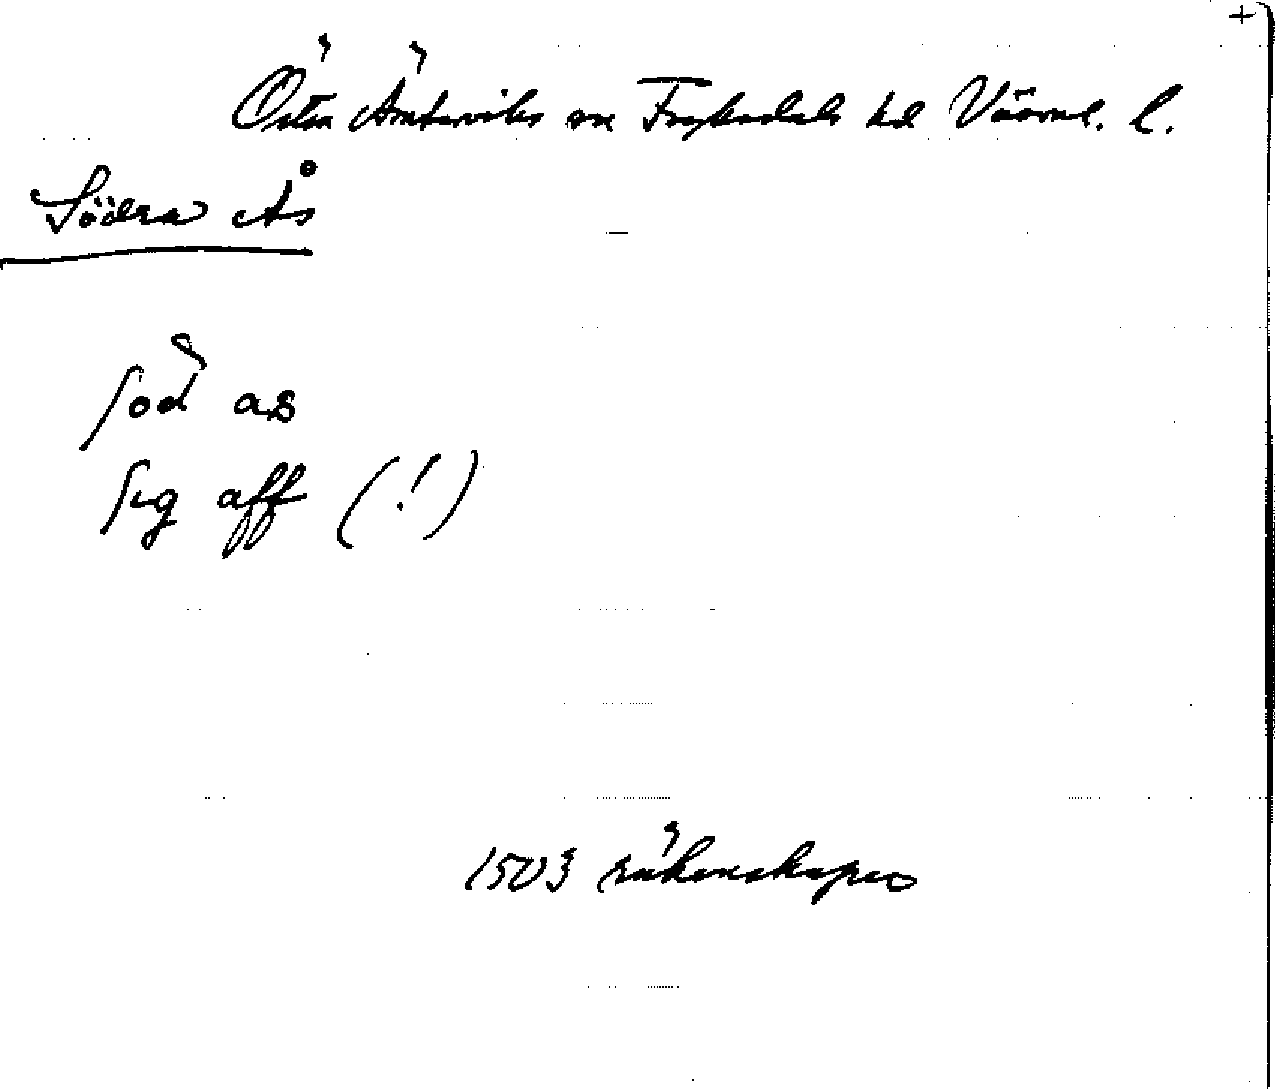 +
Östra Ämterviks sn Fryksdals hd Värml. l.
Södra Ås
söd as
sig aff (!)
1503 räkenskaper